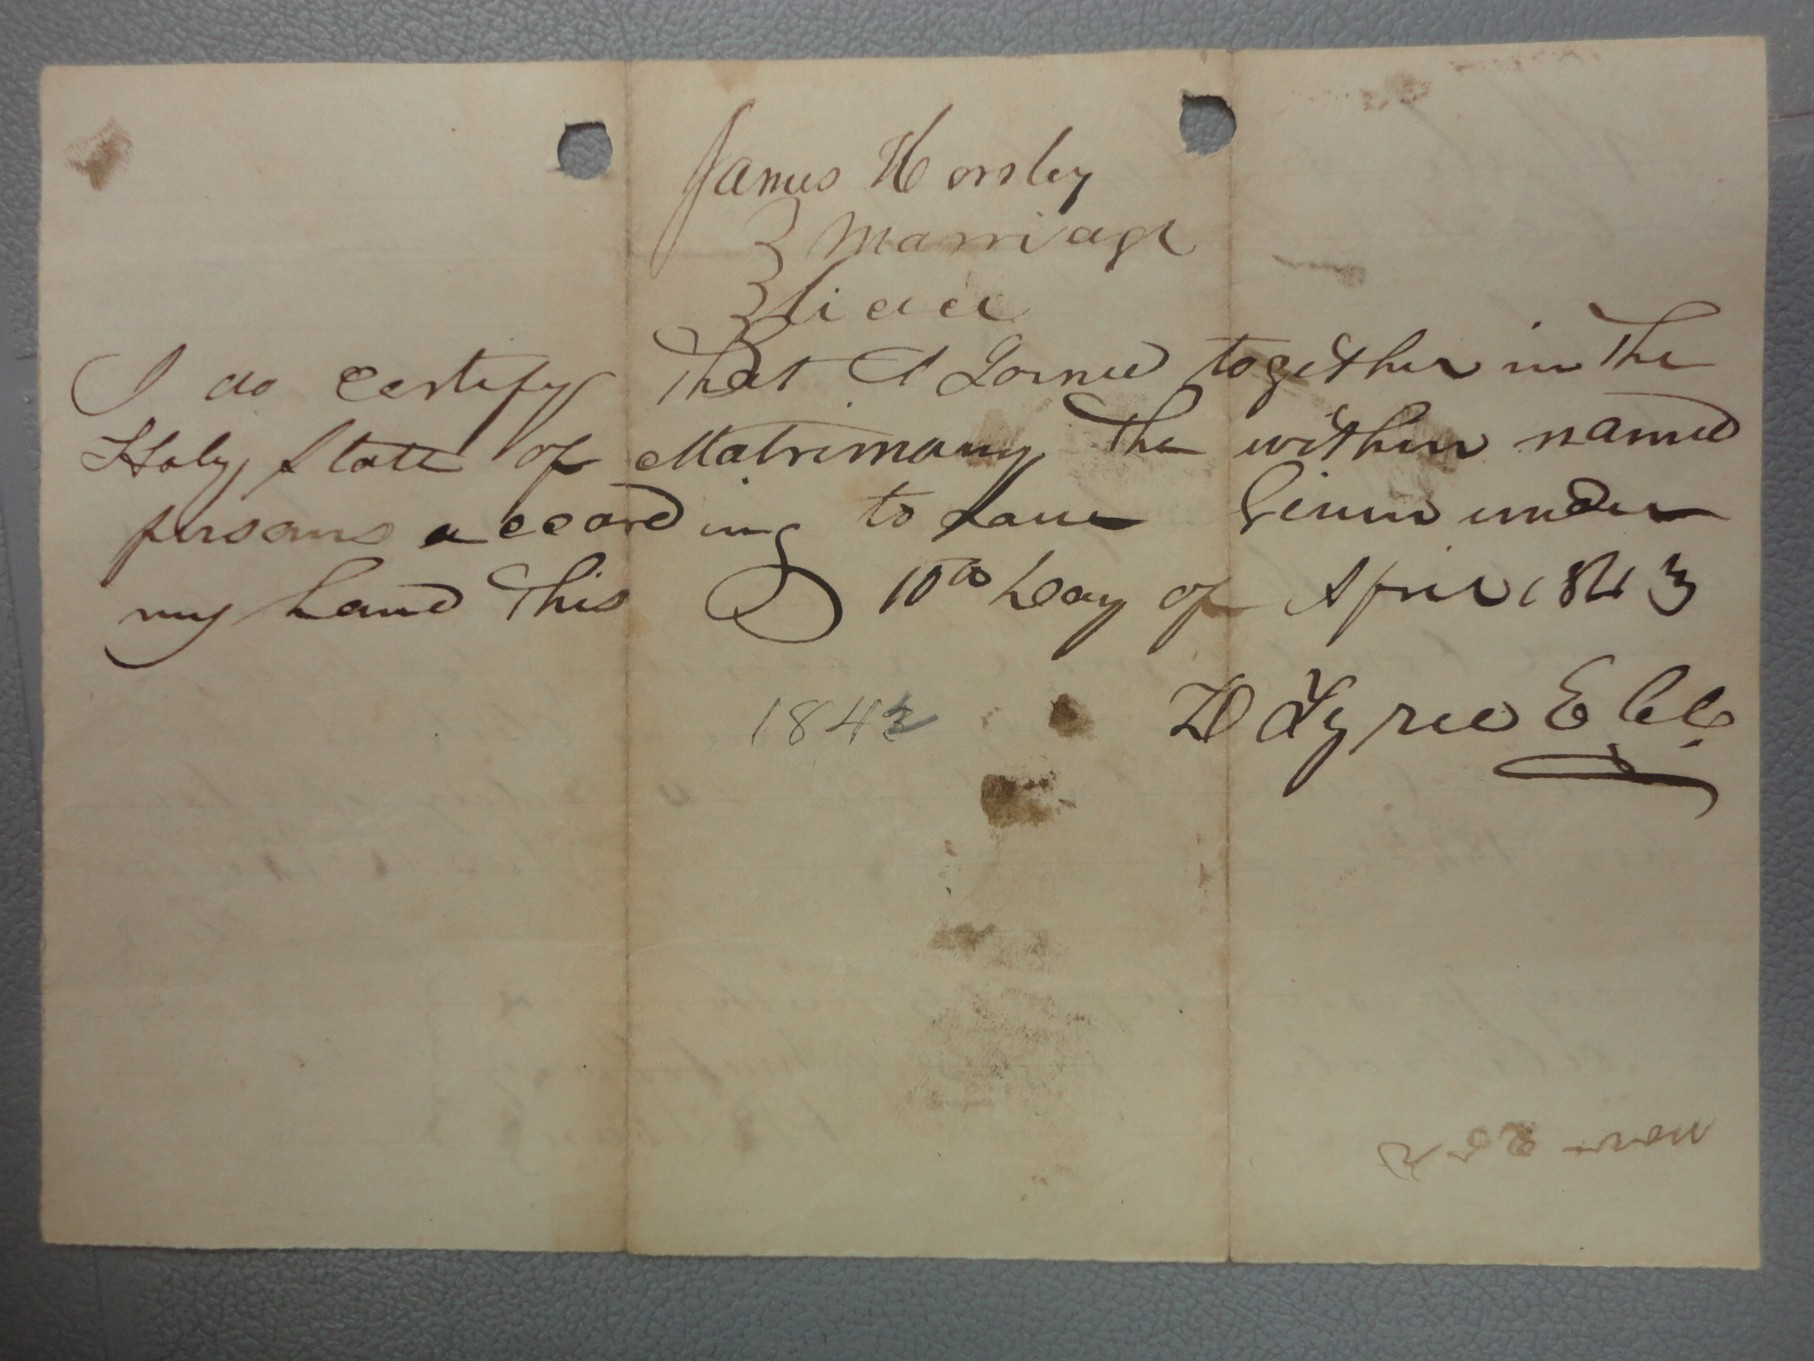 James Horsley
Marriage
I do certify that I Joined together in the
Holy State of Matrimony the within named
persons according to Law Given under
my hand this 10th Day of April 1843
1842